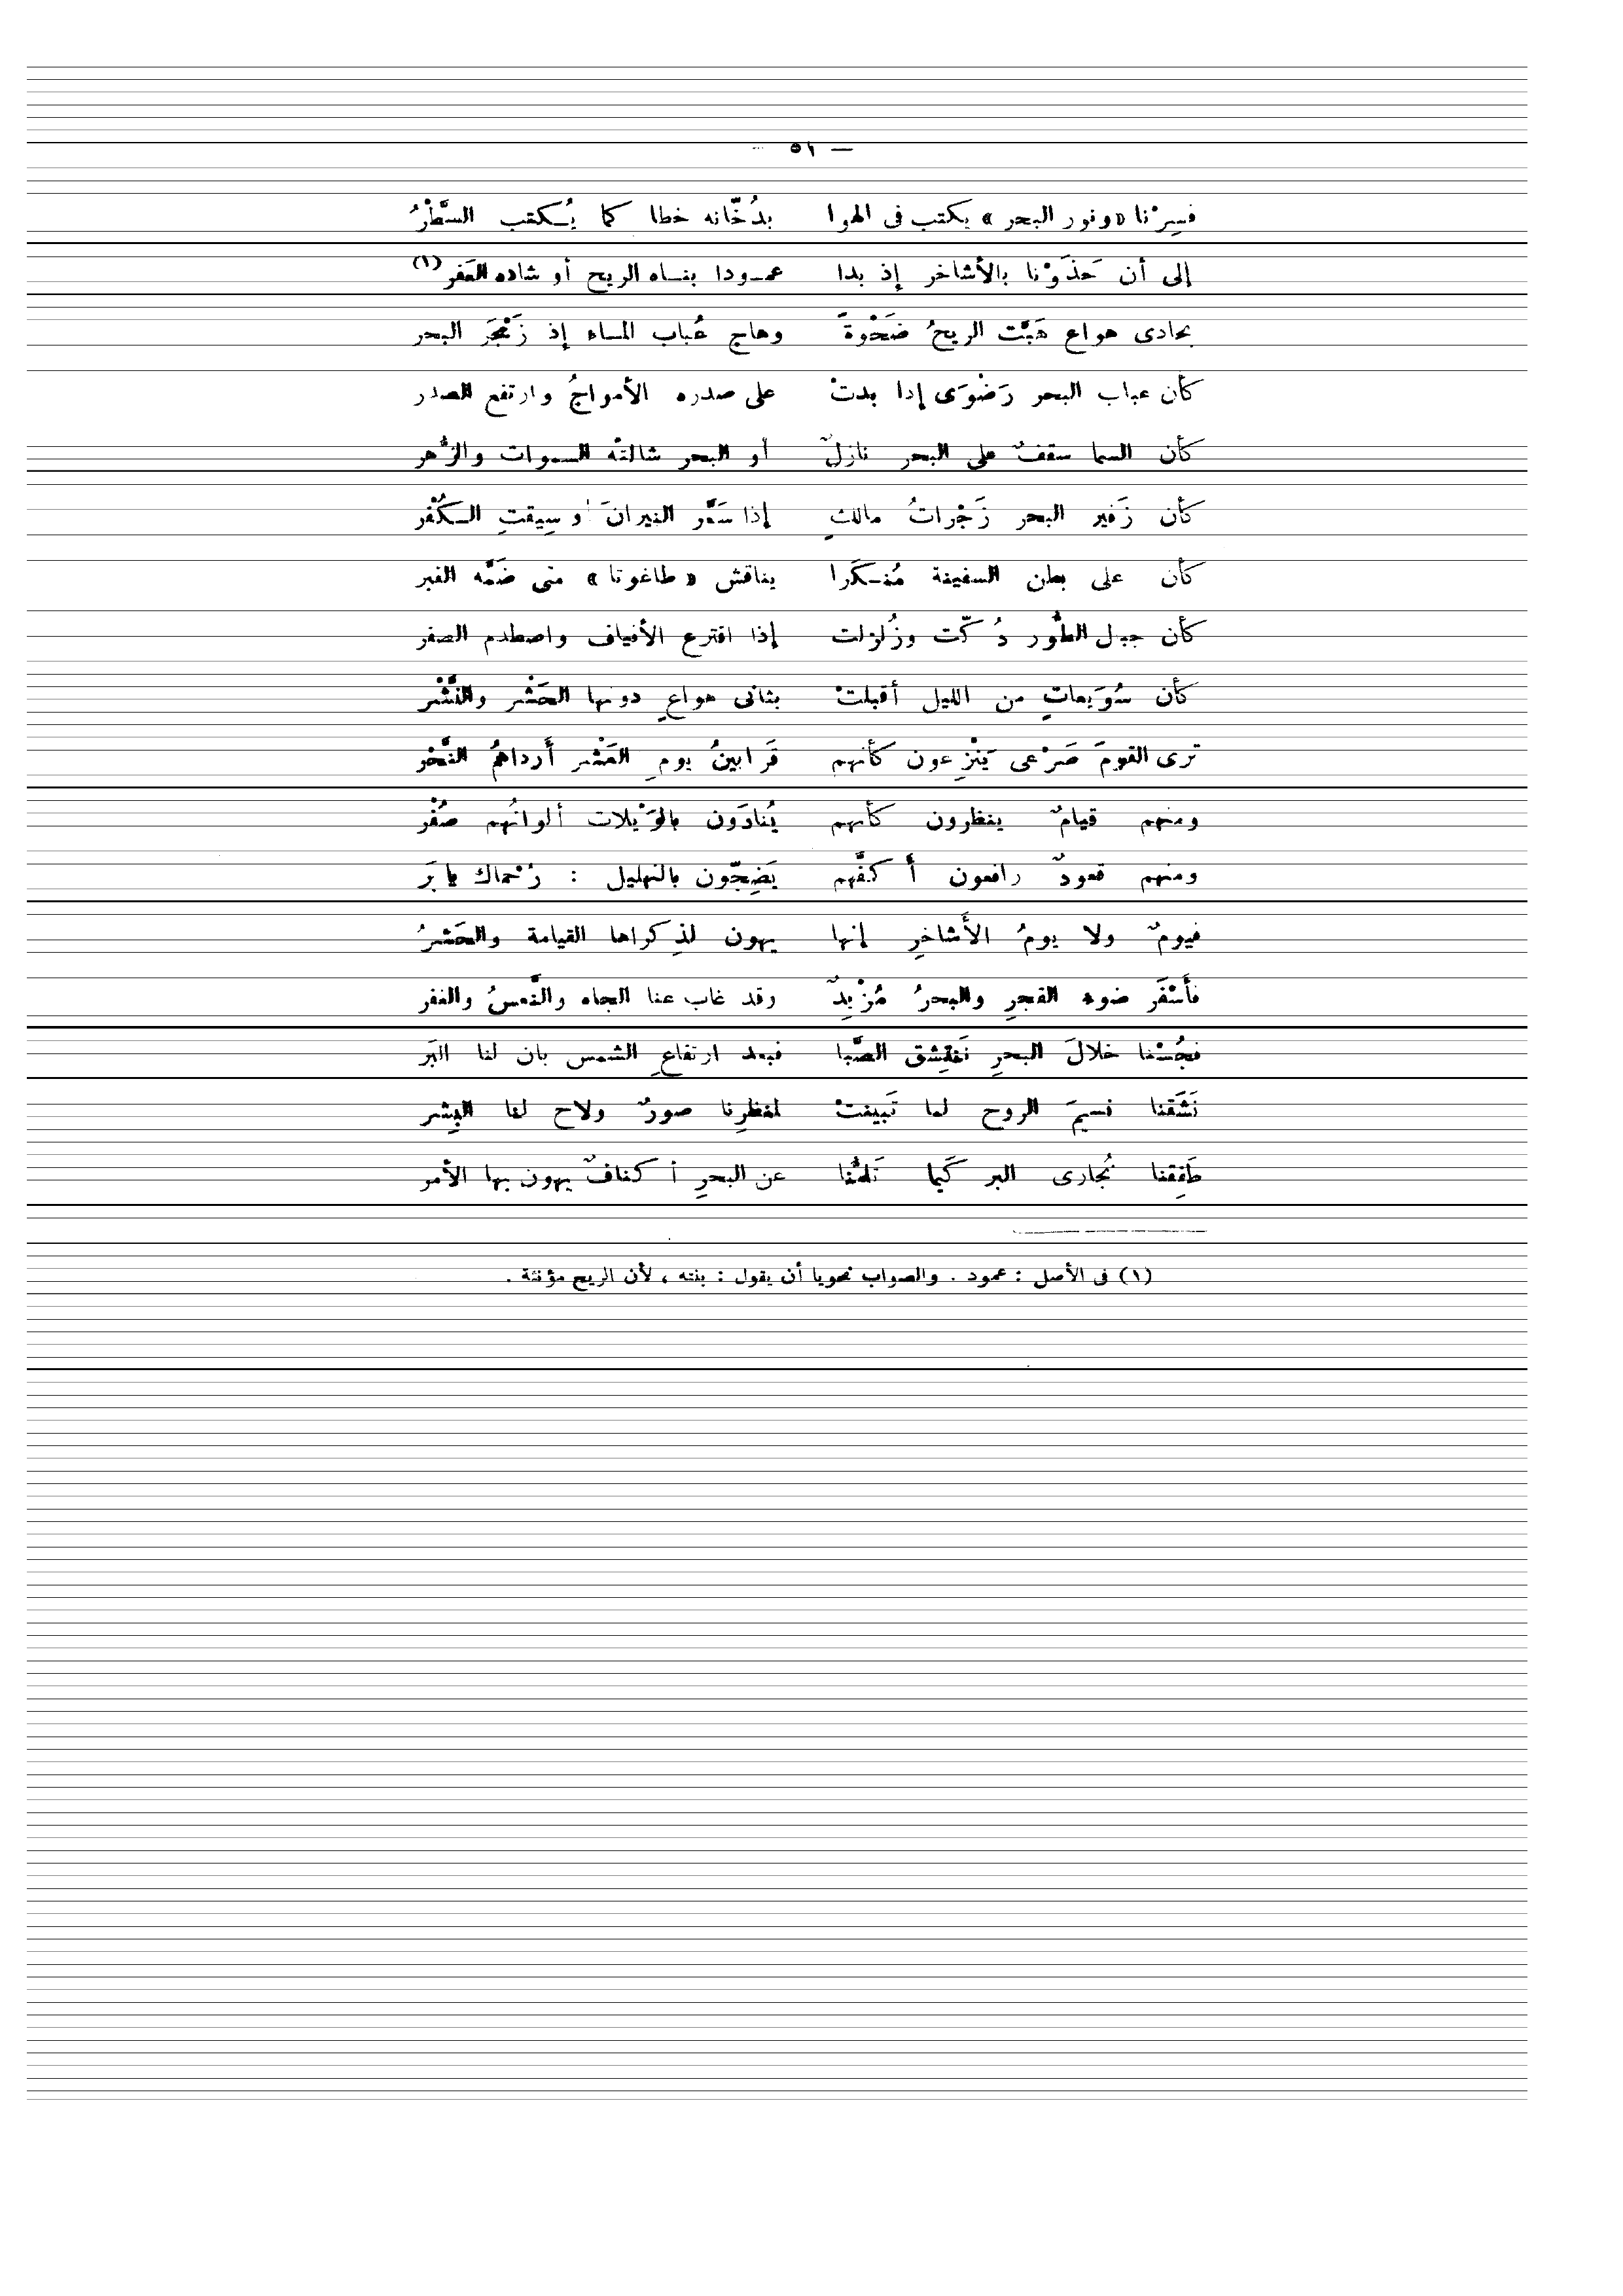 — ٥٦ —
فسِرْنا «ونور البحر» يكتب فى الهوا بدُخّانه خطا كما يُكتب السَّطْرُ
إلى أن حَذَوْنا بالأشاخر إذ بدا عمودا بناه الريح أو شاده العَفر (١)
بحادى هواع هَبَّت الريحُ ضَحْوةً وهاج عُباب الماء إذ زَمْجَرَ البحر
كأن عباب البحر رَضْوَى إذا بدتْ على صدره الأمواجُ وارتفع الصدر
كأن السما سقفٌ على البحر نازلٌ أو البحر شالته السموات والزُّهر
كأن زَفير البحر زَجْراتُ مالكٍ إذا سَعَّر النيرانَ أو سِيقتِ الكُفْر
كأن على بطن السفينة مُنكَرا يناقش «طاغوتا» متى ضَمَّه القبر
كأن جبل الطُّور دُكّت وزُلزلت إذا اقترع الأفياف واصطدم الصفر
كأن سُوَيعاتٍ من الليل أقبلتْ بثانى هواعٍ دونها الحَشْر والنَّشْر
ترى القومَ صَرْعى يَنْزِعون كأنهم قَرابينُ يومِ العَشْر أَرداهمُ النَّحْر
ومنهم قيامٌ ينظرون كأنهم يُنادَون بالوَيْلات ألوانُهم صُفْر
ومنهم قعودٌ رافعون أَكفَّهم يَضِجّون بالتهليل : رُحماك يا بَر
فيومٌ ولا يومُ الأَشاخرِ إنها يهون لذِكراها القيامة والحَشرُ
فأَسْفَر ضوء الفجرِ والبحرُ مُزْبِدٌ وقد غاب عنا الجاه والنَّعسُ والغفر
فجُسْنا خلالَ البحرِ نَنتشِق الصَّبا فبعد ارتفاعِ الشمس بان لنا البَر
نَشَقنا نسيمَ الروح لما تَبينتْ لمنظرِنا صورٌ ولاح لنا البِشر
طَفِقنا نُجارى البر كَيما تَلمُّنا عن البحرِ أكنافٌ يهون بها الأمر
(١) فى الأصل : عمود . والصواب نحويا أن يقول : بنته ، لأن الريح مؤنثة .